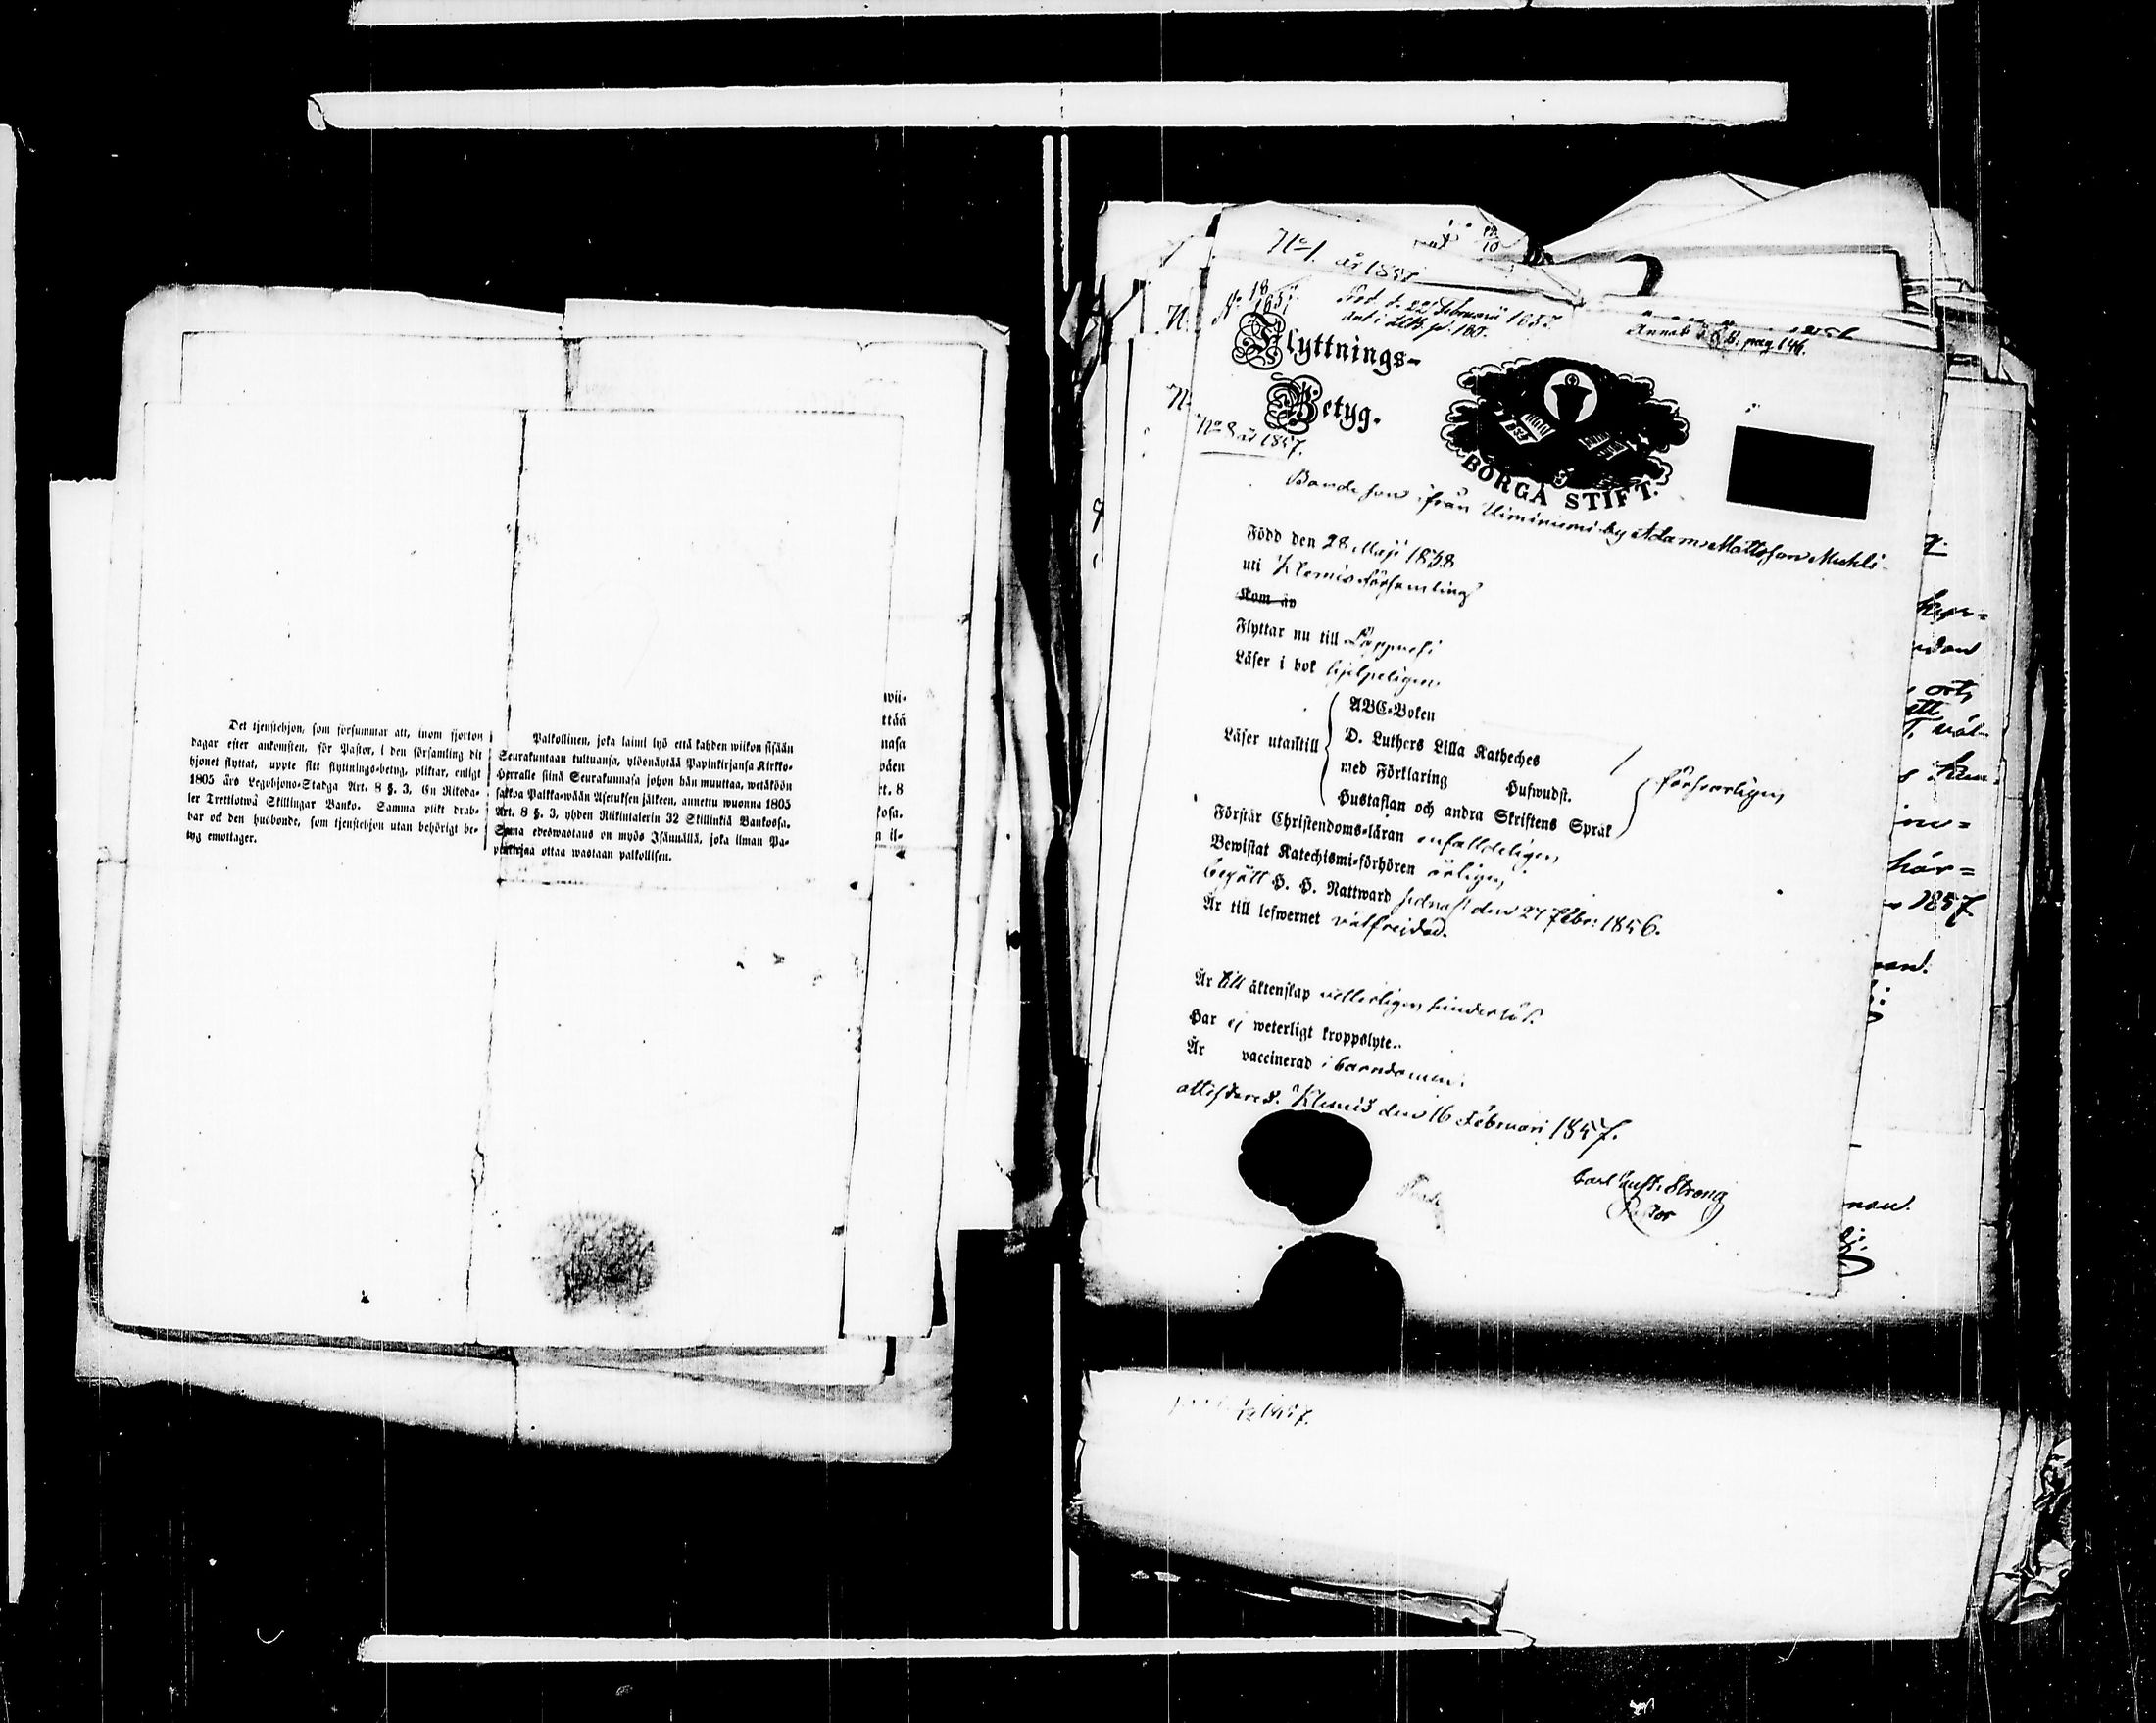 Det tjenstehjon, som försummar att, inom fjorton
dagar efter ankomsten, för Pastor, i den församling dit
hjonet flyttat, uppte sitt flyttnings-betyg, pliktar, enligt
1805 års Legohjons-Stadga Art. 8 §. 3, En Riksda-
ler Trettiotwå Skillingar Banko. Samma plikt drab-
bar ock den husbonde, som tjenstehjon utan behörigt be-
tyg emottager.
Palkollinen, joka laimi lyö että kahden wiikon sisään
Seurakuntaan tultuansa, ylösnäytää Papinkirjansa Kirkko-
Herralle siinä Seurakunnasa johon hän muuttaa, wetäköön
sakkoa Palkka-wään Asetuksen jälkeen, annettu wuonna 1805
Art. 8 §. 3, yhden Riikintalerin 32 Skillinkiä Bankossa.
Sama edeswastaus on myös Isännällä, joka ilman Pa-
pinkirjaa ottaa wastaan palkollisen.
wii-
ttää
nasa
wäen
rt. 8
kosa.
n il-
No 1. år 1857
No 18 1857.
Prod. d. 22 Februarii 1857.
Ant. i
Annot. i K.B. pag 146.
Flyttnings-
Betyg.
No 8 år 1857.
BORGÅ STIFT.
Bondeson ifrån Uiminiemi by Adam Mattsson Muhli-
Född den 28 Maji 1838
uti Klemis församling
Kom år
Flyttar nu till Lappvesi
Läser i bok hjelpeligen
ABC-Boken
Läser utantill D. Luthers Lilla Katheches
med Förklaring Hufwudst. försvarligen
Hustaflan och andra Skriftens Språk
Förstår Christendoms-läran enfalldeligen
Bewistat Katechismi-förhören årligen
begått H. H. Nattward sednast den 27 7tbr: 1856.
Är till lefwernet välfrejdad.
Är till äktenskap vitterligen hinderlös.
Har ej weterligt kroppslyte.
Är vaccinerad i barndomen.
attesteras. Klemis den 16 Februari 1857.
Carl Gust. Strong
Pastor